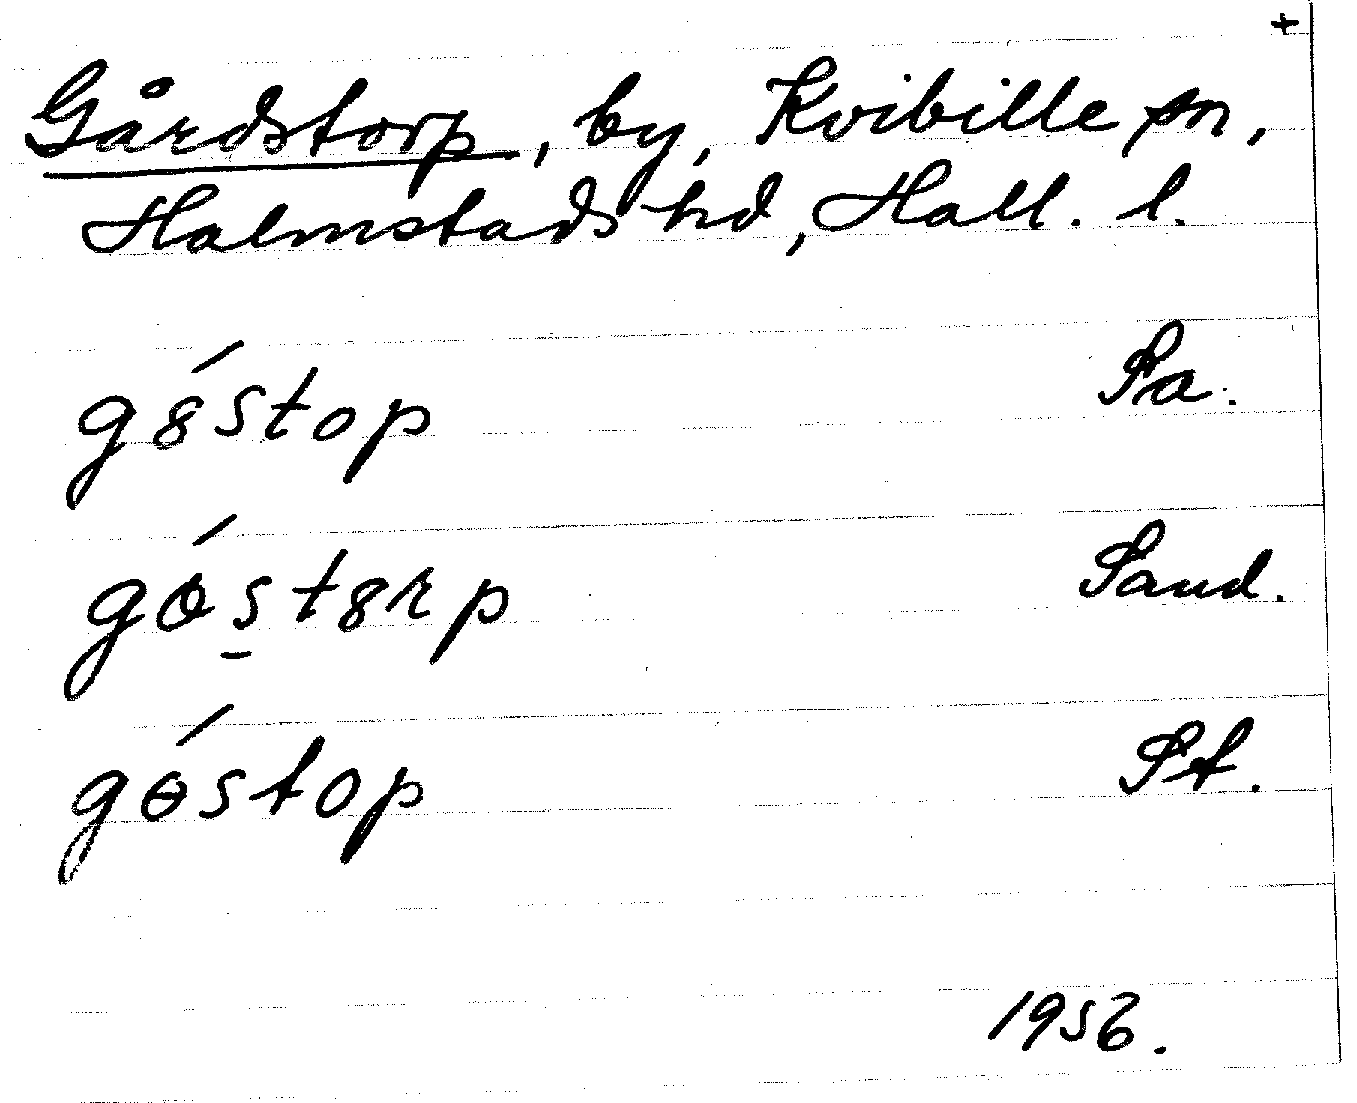 +
Gårdstorp, by, Kvibille sn,
Halmstads hd, Hall. l.
gȣ́stop Sa.
gó̵s̱tȣrp Sand.
gɵ́stop St.
1956.